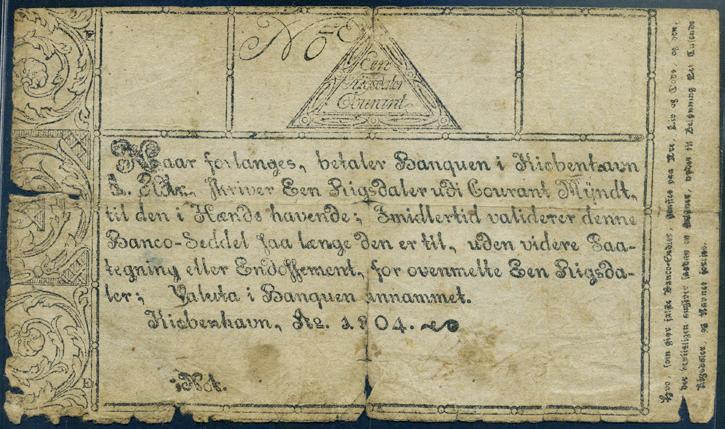 No
Een
Rigsdaler
Courant
Naar forlanges, betaler Banquen i Kiøbenhavn
1. Rdlr. skriver Een Rigsdaler udi Courant Myndt,
til den i Hænde havende; Imidlertid validerer denne
Banco-Seddel saa længe den er til, uden videre Paa-
tegning eller Endossement, for ovenmelte Een Rigsda-
ler; Valuta i Banquen annammet.
Kiøbenhavn, Ao. 1804.
Not.
Hvo, som giør falske Banco-Sedler, straffes paa Ære, Liv og Gods, og den,
der rettelig angiver saadan en
Rigsdaler, og Navnet forties.